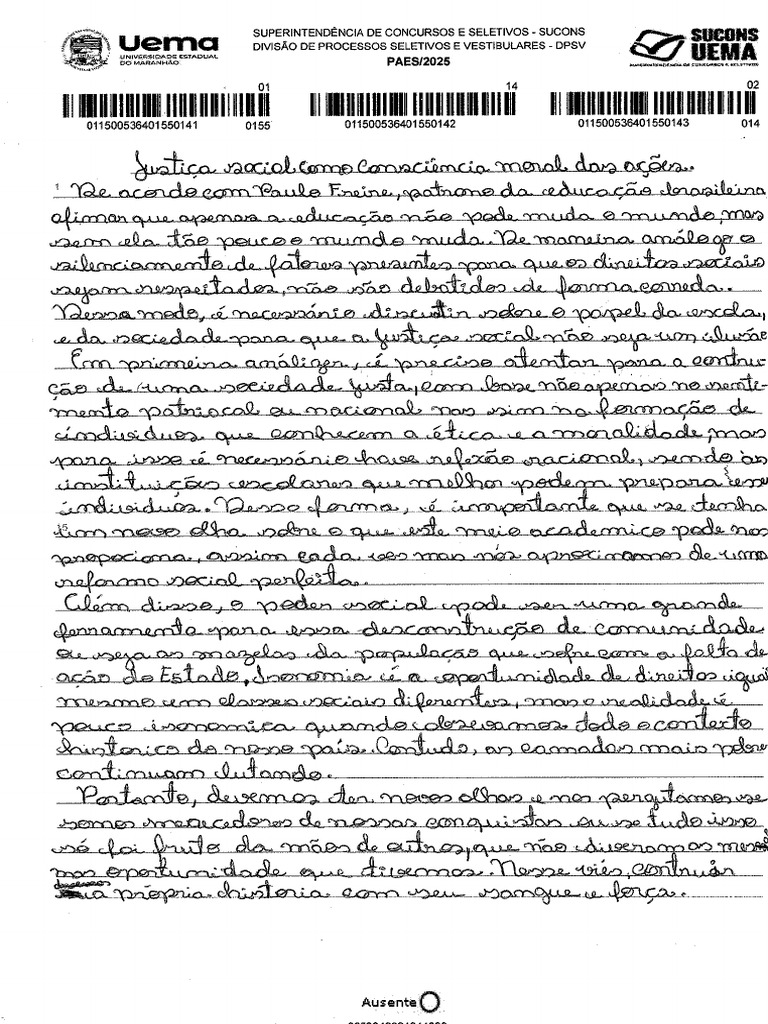 Uema
UNIVERSIDADE ESTADUAL
DO MARANHÃO
SUPERINTENDÊNCIA DE CONCURSOS E SELETIVOS - SUCONS
DIVISÃO DE PROCESSOS SELETIVOS E VESTIBULARES - DPSV
PAES/2025
SUCONS
UEMA
01
14
02
011500536401550141 0155
011500536401550142
011500536401550143 014
Justiça social como consciência moral das ações.
1 De acordo com Paulo Freire, patrono da educação brasileira
afirmar que apenas a educação não pode muda o mundo, mas
sem ela tão pouco o mundo muda. De maneira análoga o
silenciamento de fatores presentes para que os direitos sociais
sejam respeitados, não são debatidos de forma correda.
Desse modo, é necessário discutir sobre o papel da escola,
e da sociedade para que a justiça social não seja um
Em primeira análizer, é preciso atentar para a contru-
ção de uma sociedade justa, com base não apenas no senti-
mento patriocal ou nacional nas sim na formação de
individuos que conhecem a ética e a moralidade, mas
para isso é necessário have refexão racional, sendo as
instituições escolares que melhor podem prepara esse
individuos. Dessa forma, é importante que se tenha
15 um novo olha sobre o que este meio academico pode nos
propociona, assim cada ves mas nós aproximamos de uma
reforma social perfeita.
Além disso, o poder social pode ser uma grande
ferramenta para essa desconstrução de comunidade
ou seja as mazelas da população que sofre com a falta de
ação do Estado, Isonomia é a oportunidade de direitos iguai
mesmo em classes sociais diferentes, mas a realidade é
pouco isonomica quando observamos todo o contexto
historico do nosso país. Contudo, as camadas mais pobre
continuam lutando.
Portanto, devemos ter novos olhas e nos pergutamos se
somos merecedores de nossas conquistas ou se tudo isso
só foi fruto da mãos de outros, que não tiveram as mesmas
oportunidade que tivemos. Nesse viés, contruir
devemos
a própria historia com seu sangue e força.
Ausente